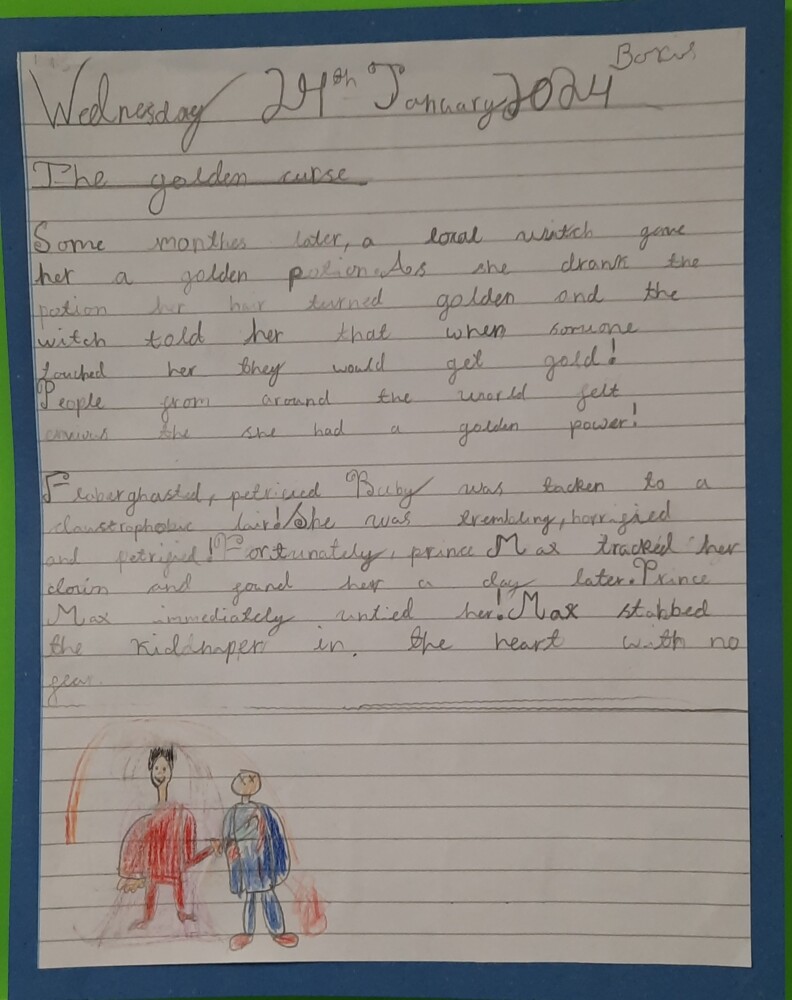 Boxus
Wednesday 24th January 2024
The golden curse
Some monthes later, a local witch gave
her a golden potion. As she drank the
potion her hair turned golden and the
witch told her that when somone
touched her they would get gold!
People from around the world felt
envious the she had a golden power!
Flaberghasted, petrified Buby was tacken to a
claustrophobic laird! She was trembling, horrified
and petrified! Fortunately, prince Max tracked her
down and found her a day later. Prince
Max immediately untied her! Max stabbed
the kidnaper in. the heart with no
fear.